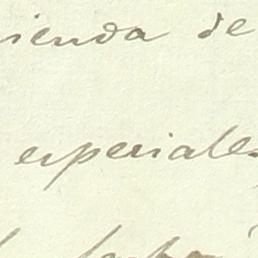 ienda de
especiales